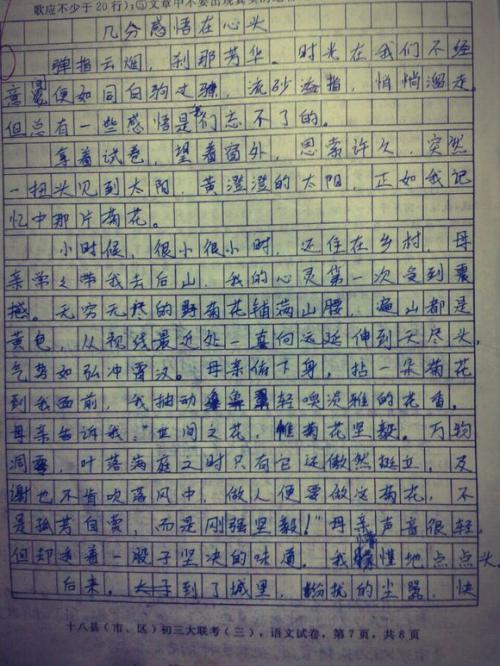 歌应不少于20行)；③文章中不要出现真实的
几分感悟在心头
弹指云烟，刹那芳华。时光在我们不经
意间便如同白驹过隙，流砂海指，悄悄溜走。
但总有一些感悟是我们忘不了的。
拿着试卷，望着窗外，思索许久，突然
一扭头见到太阳，黄澄澄的太阳，正如我记
忆中那片菊花。
小时候，很小很小时，还住在乡村，母
亲常常带我去后山，我的心灵第一次受到震
撼。无穷无尽的野菊花铺满山腰，遍山都是
黄色，从视线最近处一直向远延伸到天尽头，
气势如弘冲霄汉。母亲俯下身，拈一朵菊花
到我面前，我抽动鼻轻嗅淡雅的花香。
母亲告诉我，“世间之花，惟菊花坚毅。万物
凋零，叶落满庭之时只有它还傲然挺立，及
谢也不肯吹落风中，做人便要做这菊花，不
是孤芳自赏，而是刚强坚毅！”母亲声音很轻，
但却透着一股子坚决的味道。我懵懂地点点头。
后来，到了城里，纷扰的尘嚣，快
十八县（市、区）初三大联考（三），语文试卷，第7页，共8页